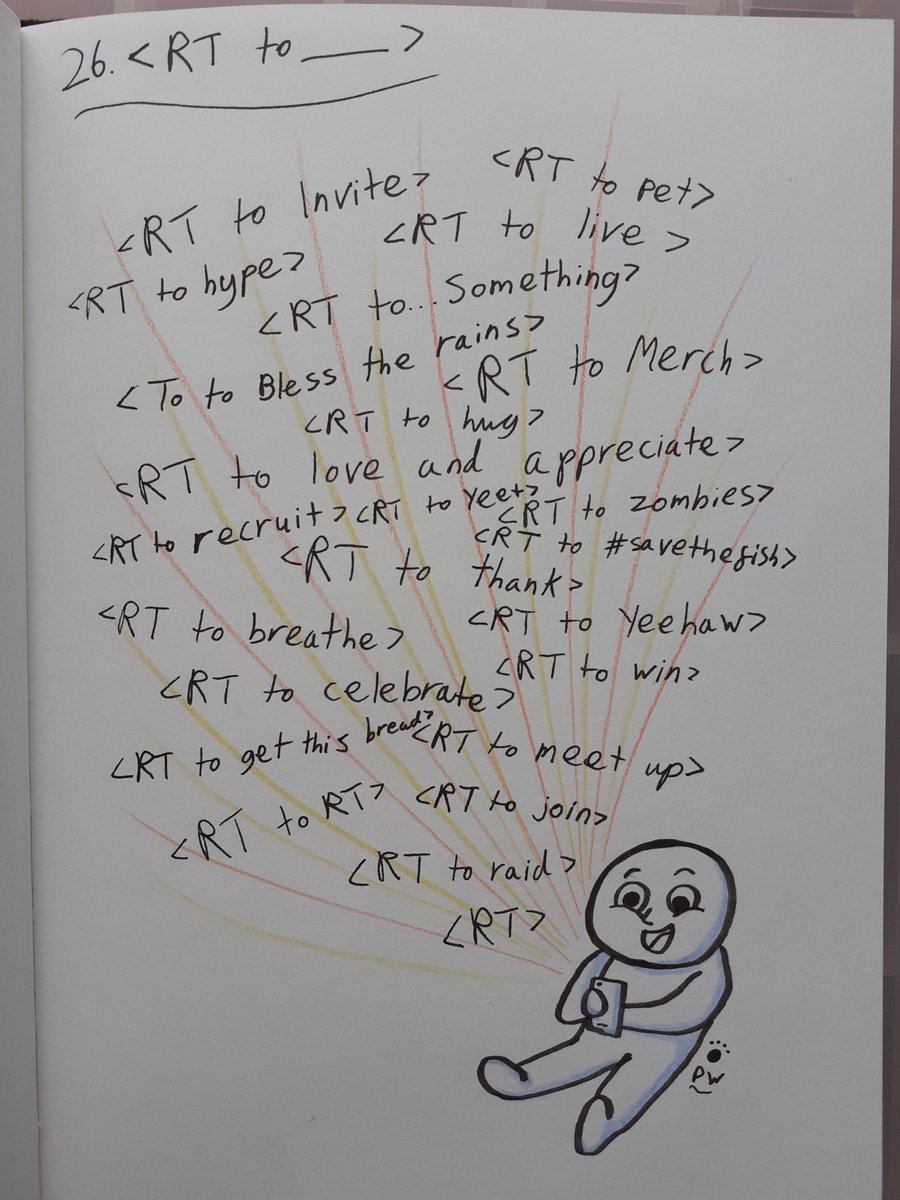 26. <RT to ___>
<RT to Invite>
<RT to pet>
<RT to live>
<RT to hype>
<RT to... Something>
<To to Bless the rains>
<RT to Merch>
<RT to hug>
<RT to love and appreciate>
<RT to recruit>
<RT to Yeet>
<RT to zombies>
<RT to #savethefish>
<RT to thank>
<RT to breathe>
<RT to Yeehaw>
<RT to win>
<RT to celebrate>
<RT to get this bread>
<RT to meet up>
<RT to RT>
<RT to join>
<RT to raid>
<RT>
PW